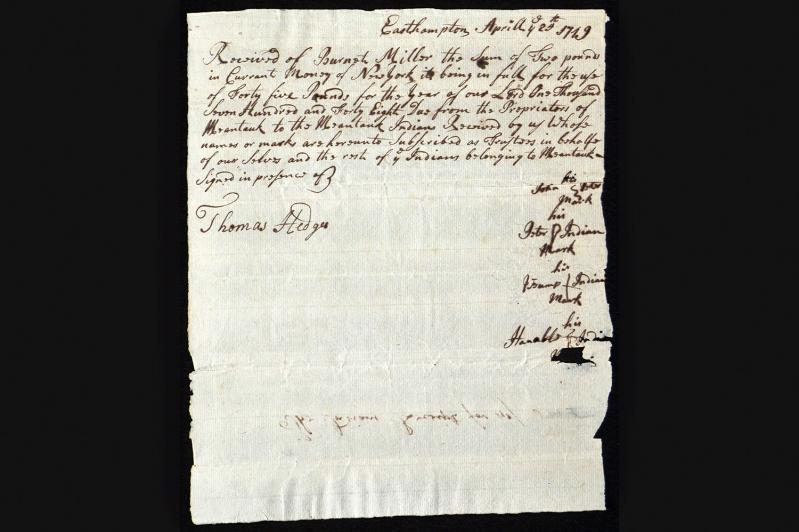 Easthampton Aprill ye 28th 1749
Received of Burnet Miller the Sum of Two pounds
in Currant Money of New York it being in full for the use
of Forty five Pounds for the Year of our Lord One Thousand
Seven Hundred and Forty Eight Due from the Propriators of
Meantauk to the Meantauk Indians Received by us Whose
names or marks are hereunto Subscribed as Trustees in behalfe
of our Selves and the rest of ye Indians belonging to Meantauk
Signed in presence of
his
John Peter
Mark
Thomas Hedges
his
Peter Indian
Mark
his
Indian
Mark
his
Hanable Indian
The Indian Receipt for